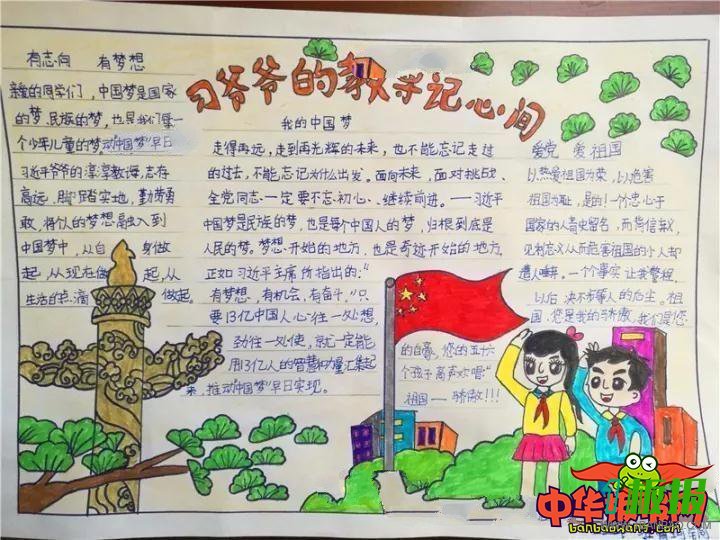 习爷爷的教导记心间
有志向 有梦想
亲爱的同学们，中国梦是国家
的梦，民族的梦，也是我们每一
个少年儿童的梦动中国梦"早日
习近平爷爷的谆谆教诲，志存
高远，脚踏实地，勤劳勇
敢，将个人的梦想融入到
中国梦中，从自身做
起，从现在做起，从
生活的点滴做起。
我的中国梦
走得再远，走到再光辉的未来，也不能忘记走过
的过去，不能忘记为什么出发。面向未来，面对挑战、
全党同志一定要不忘初心、继续前进。——习近平
中国梦是民族的梦，也是每个中国人的梦，归根到底是
人民的梦。梦想开始的地方，也是奇迹开始的地方。
正如习近平主席所指出的："
有梦想，有机会，有奋斗，"只
要13亿中国人心往一处想，
劲往一处使，就一定能
用13亿人的智慧和力量汇集起
来，推动中国梦"早日实现。
爱党 爱祖国
以热爱祖国为荣，以危害
祖国为耻，是的！一个忠心于
国家的人青史留名，而背信弃义，
见利忘义从而危害祖国的小人却
遭人唾弃。一个事实让我警捉，
以后决不步罪人的后尘。祖
国，您是我的骄傲，我们是您
的自豪。您的五十六
个孩子高声欢唱"
祖国——骄傲!!!
中华
banbaowang.com